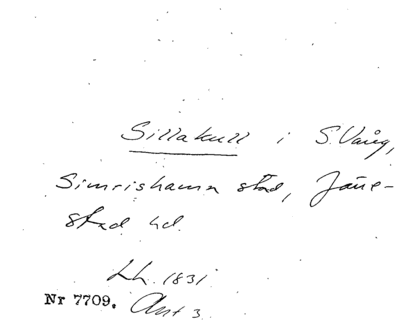 Sillakull i S. Vång,
Simrishamn stad, Järe-
stad hd.
Lh. 1831
Nr 7709. Akt 3